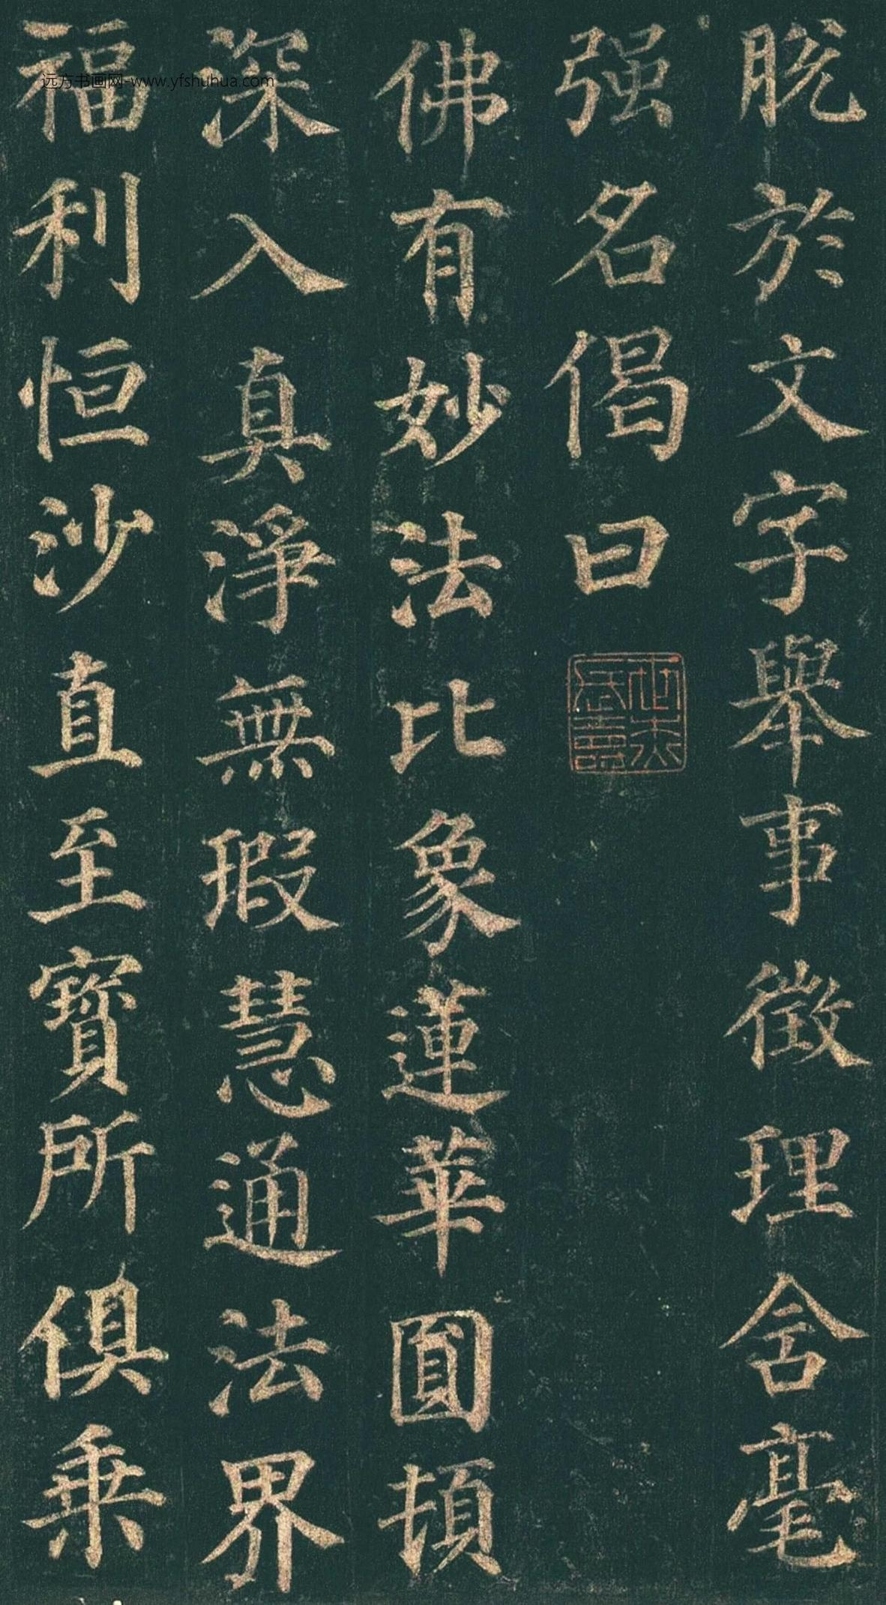 脫於文字舉事徵理含毫
强名偈曰
佛有妙法比象蓮華圓頓
深入真淨無瑕慧通法界
福利恒沙直至寶所俱乗
远方书画网-www.yfshuhua.com